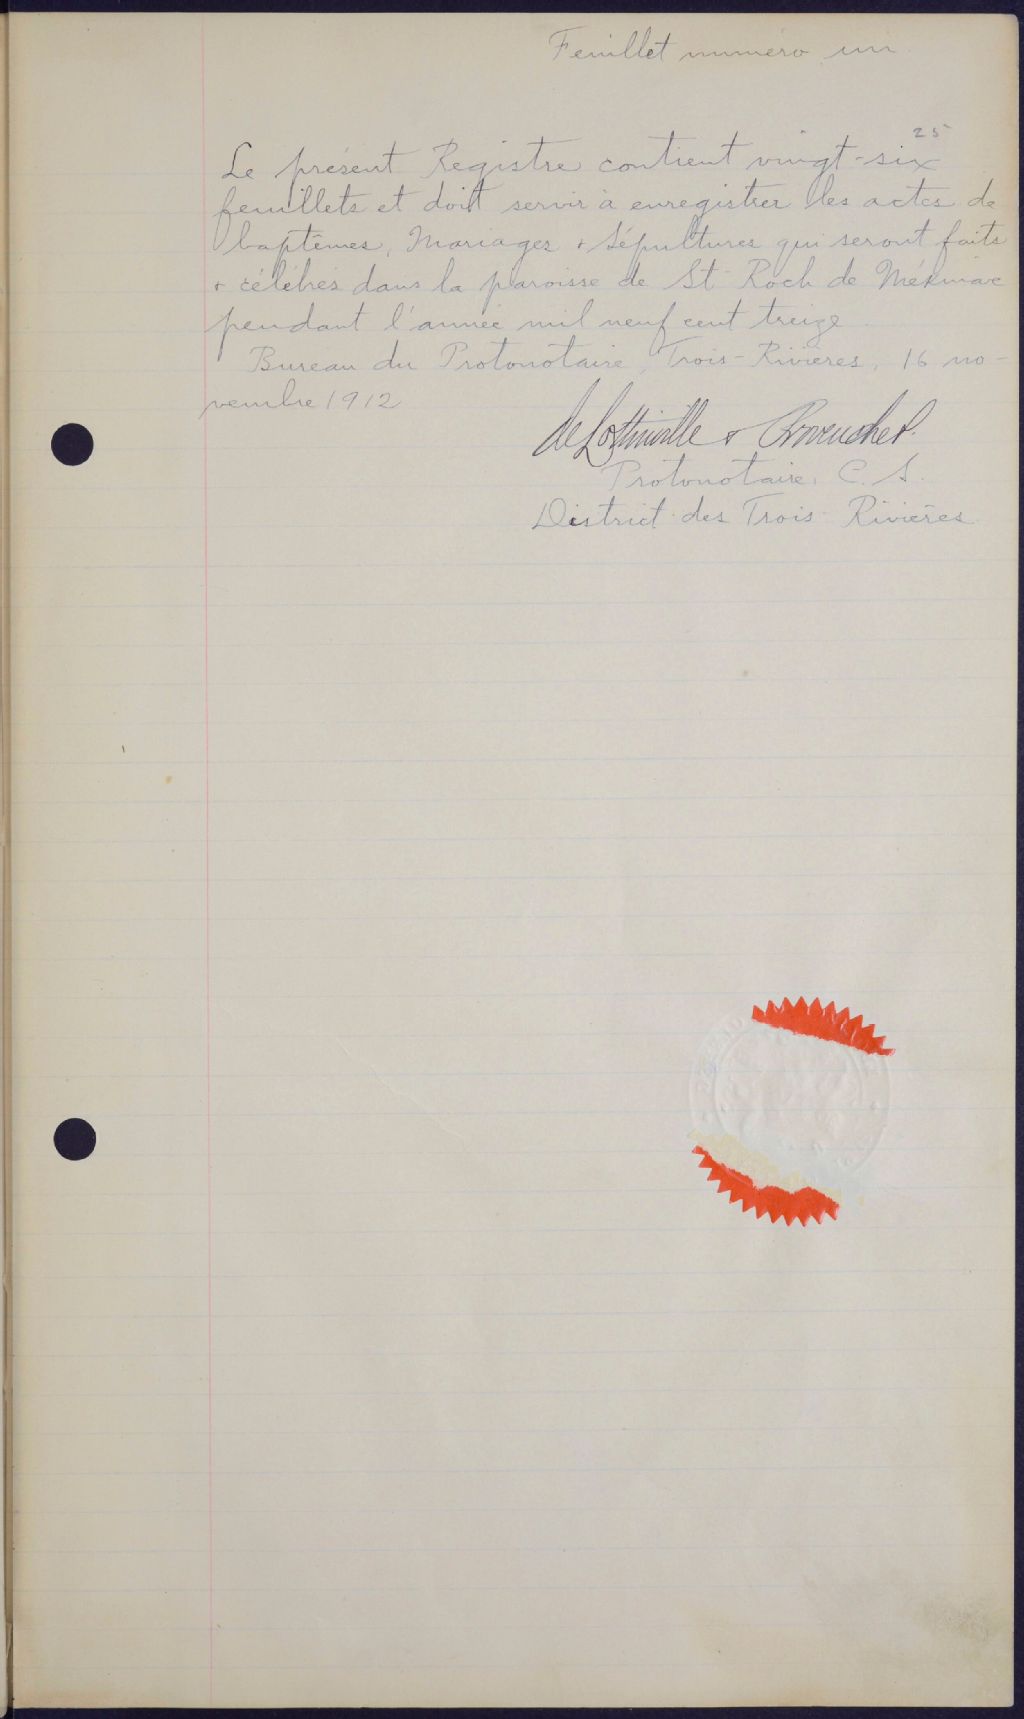 Feuillet numéro un
25
Le présent Registre contient vingt-six
feuillets et doit servir à enregistrer les actes de
baptêmes, Mariages & Sépultures qui seront faits
& célébrés dans la paroisse de St Roch de Mékinac
pendant l'année mil neuf cent treize.
Bureau du Protonotaire, Trois-Rivières, 16 no-
vembre 1912
deLottinville &
Protonotaire, C. S.
District des Trois Rivières